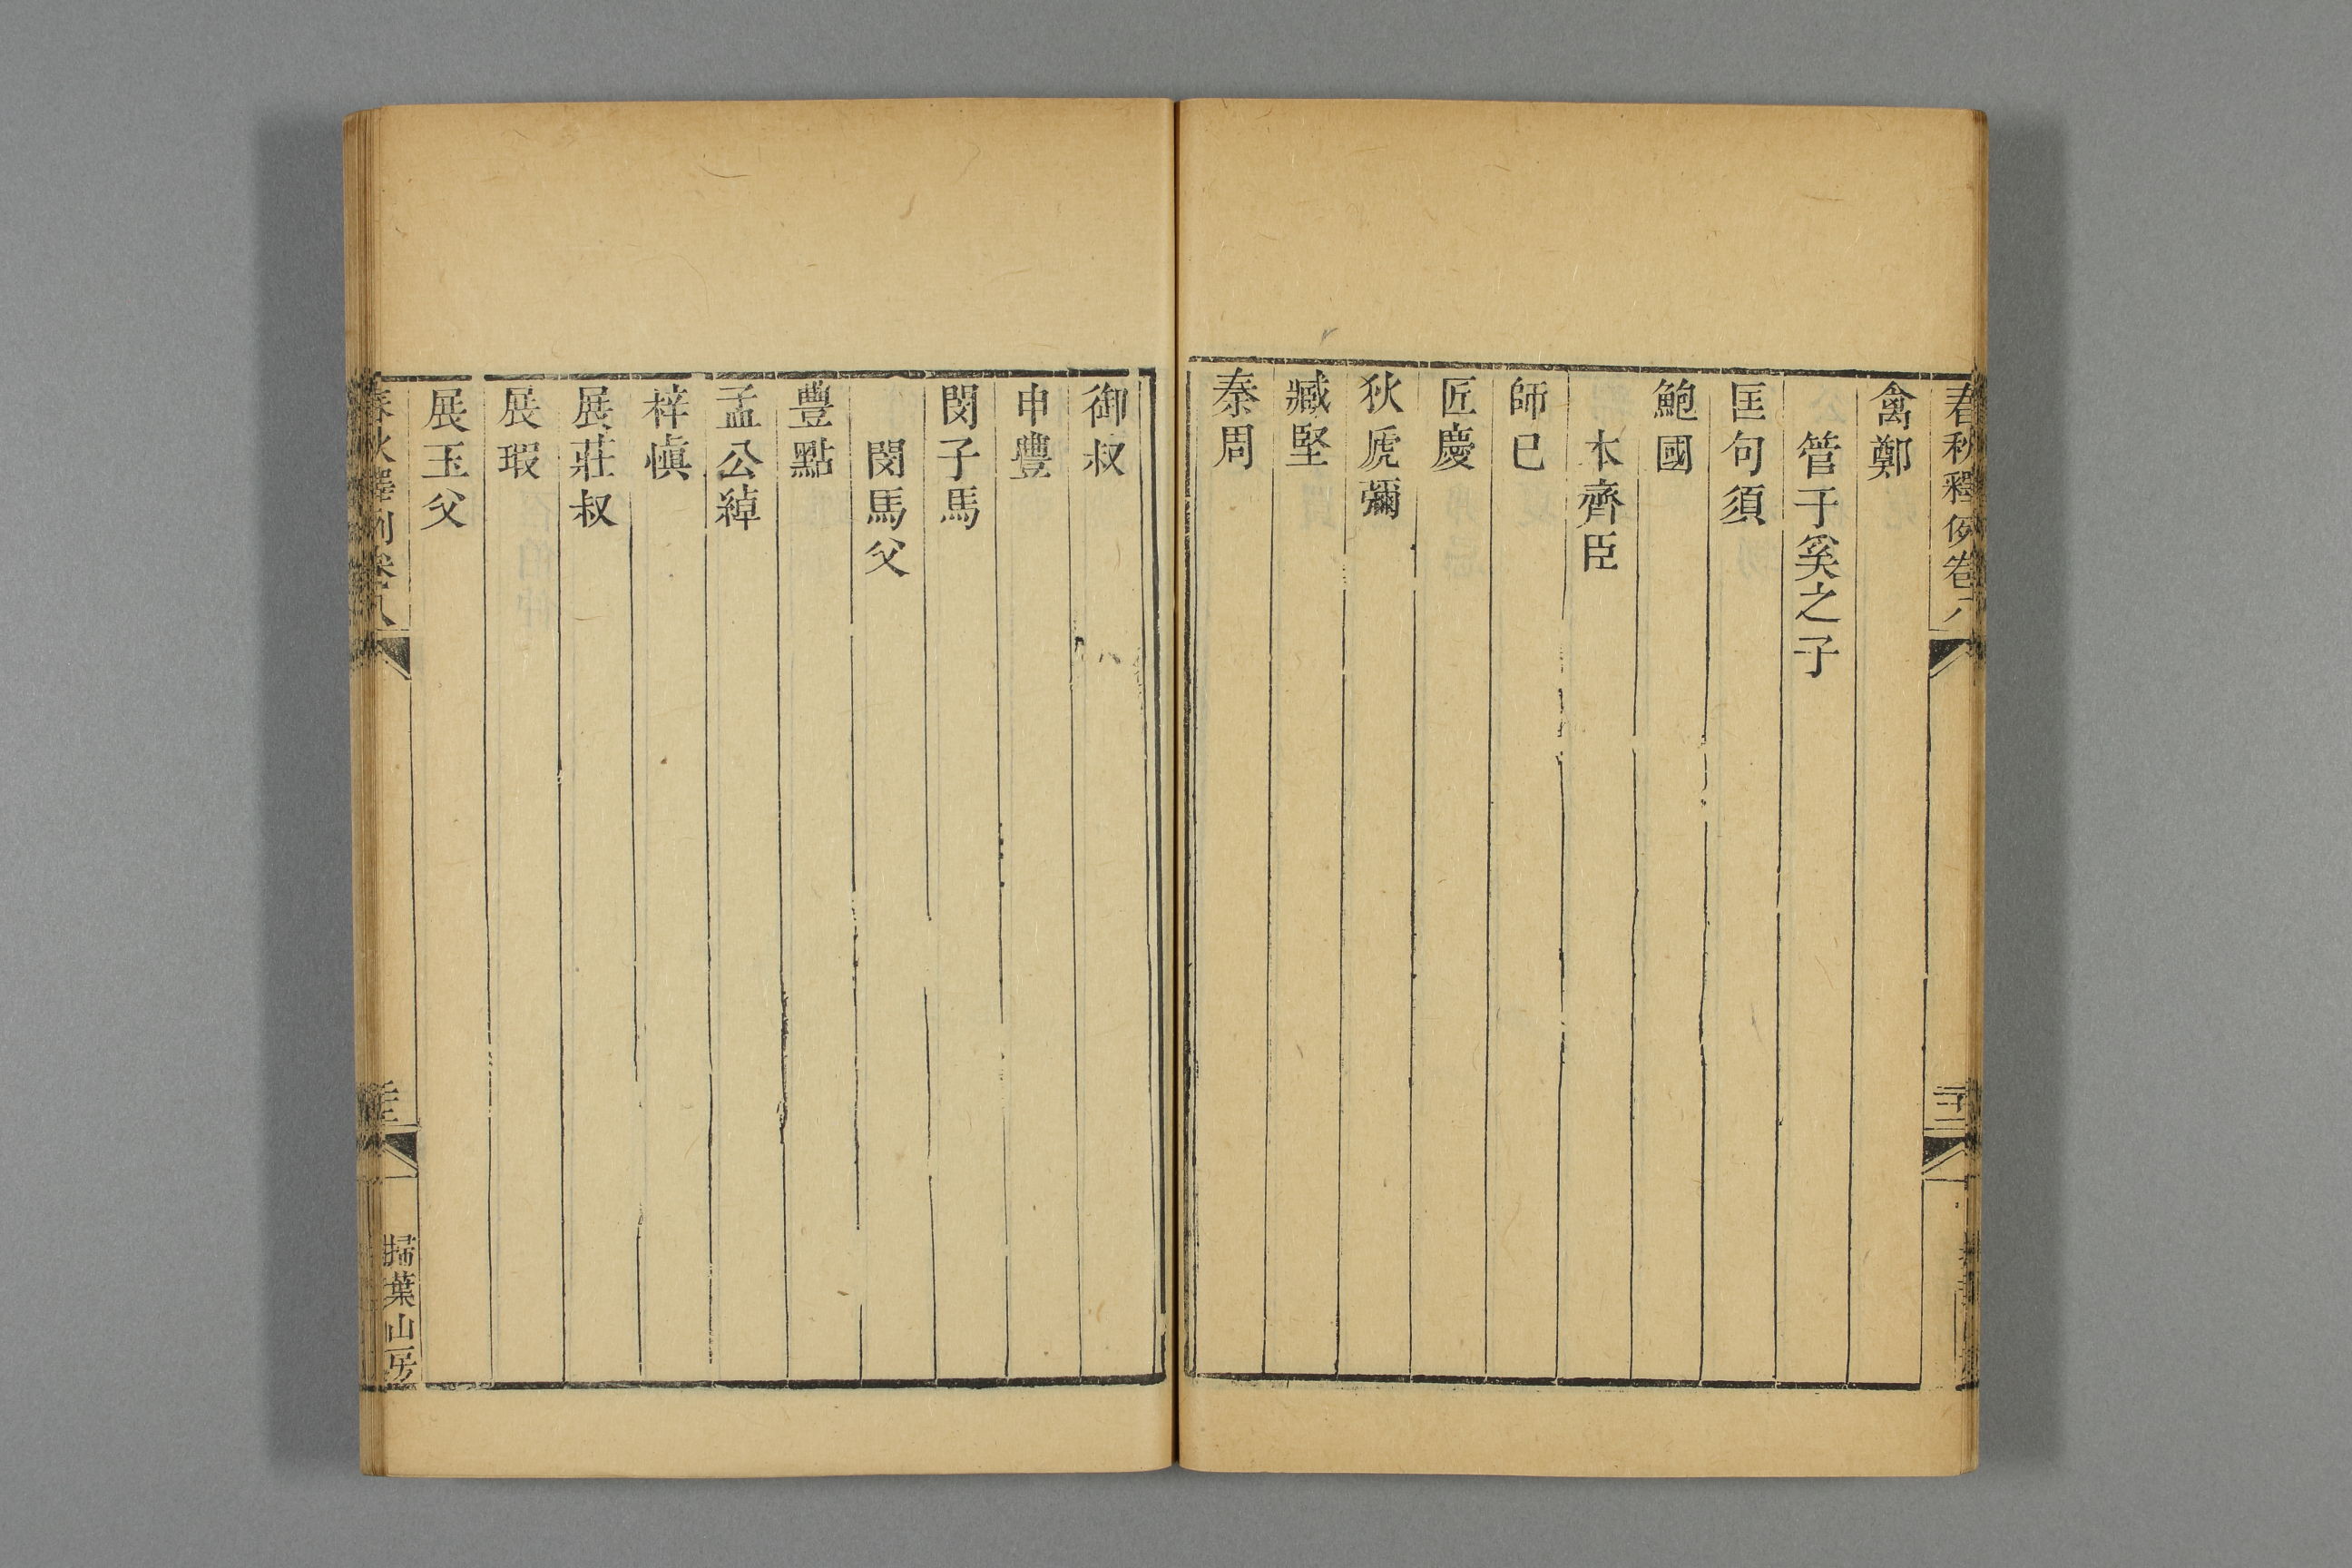 春秋釋例卷八
二十二
禽鄭
管于奚之子
匡句須
鮑國
本齊臣
師已
匠慶
狄虒彌
臧堅
秦周
御叔
申豐
閔子馬
閔馬父
豐點
孟公綽
梓慎
展莊叔
展瑕
展玉父
春秋釋例卷八
掃葉山房